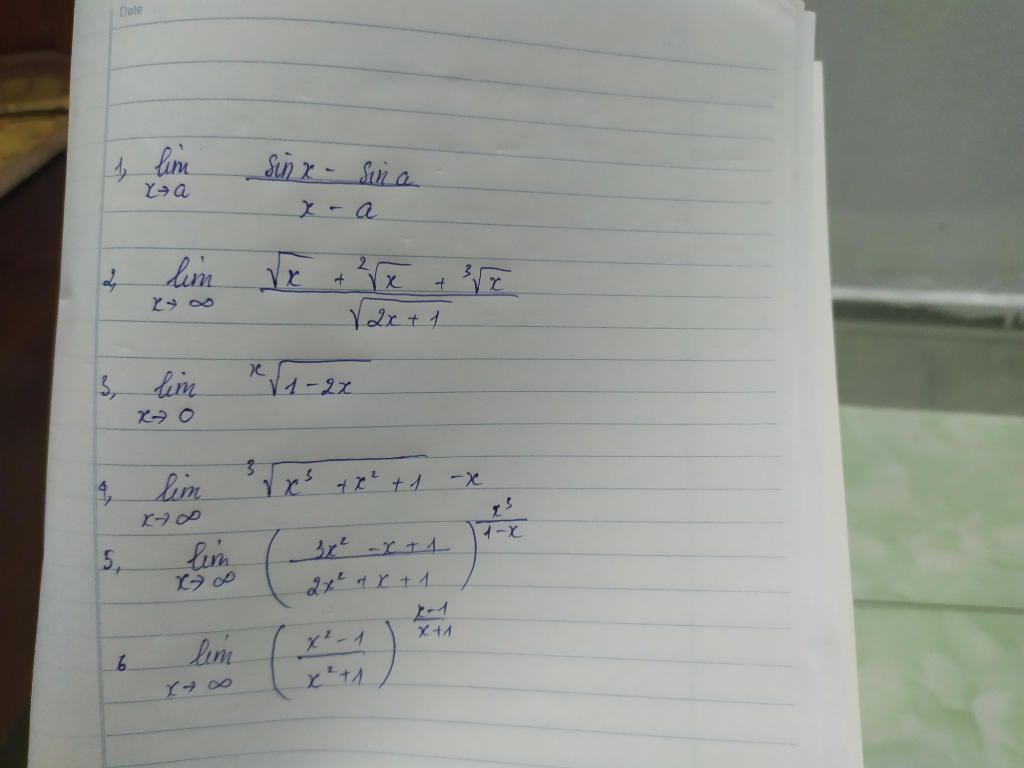 Date
1, lim x→a (sin x - sin a)/(x - a)
2, lim x→∞ (√x + ²√x + ³√x)/√(2x + 1)
3, lim x→0 ˣ√(1 - 2x)
4, lim x→∞ ³√(x³ + x² + 1) - x
5, lim x→∞ ((3x² - x + 1)/(2x² + x + 1))^(x³/(1-x))
6 lim x→∞ ((x² - 1)/(x² + 1))^((x-1)/(x+1))